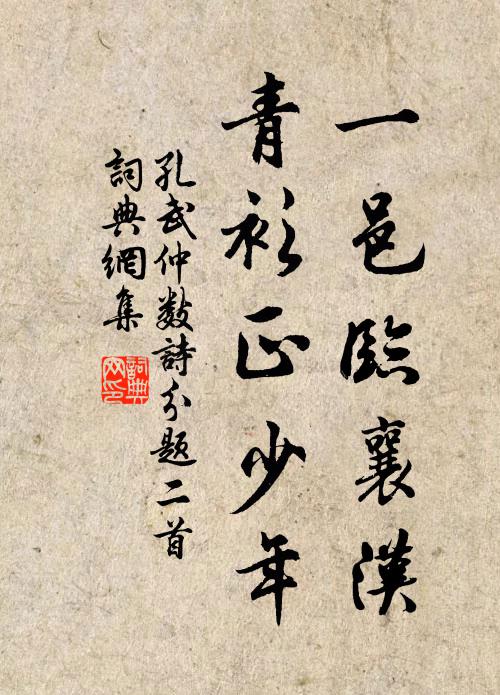 一邑臨襄漢
青衫正少年
孔武仲數詩分題二首
詞典網集
詞典網印